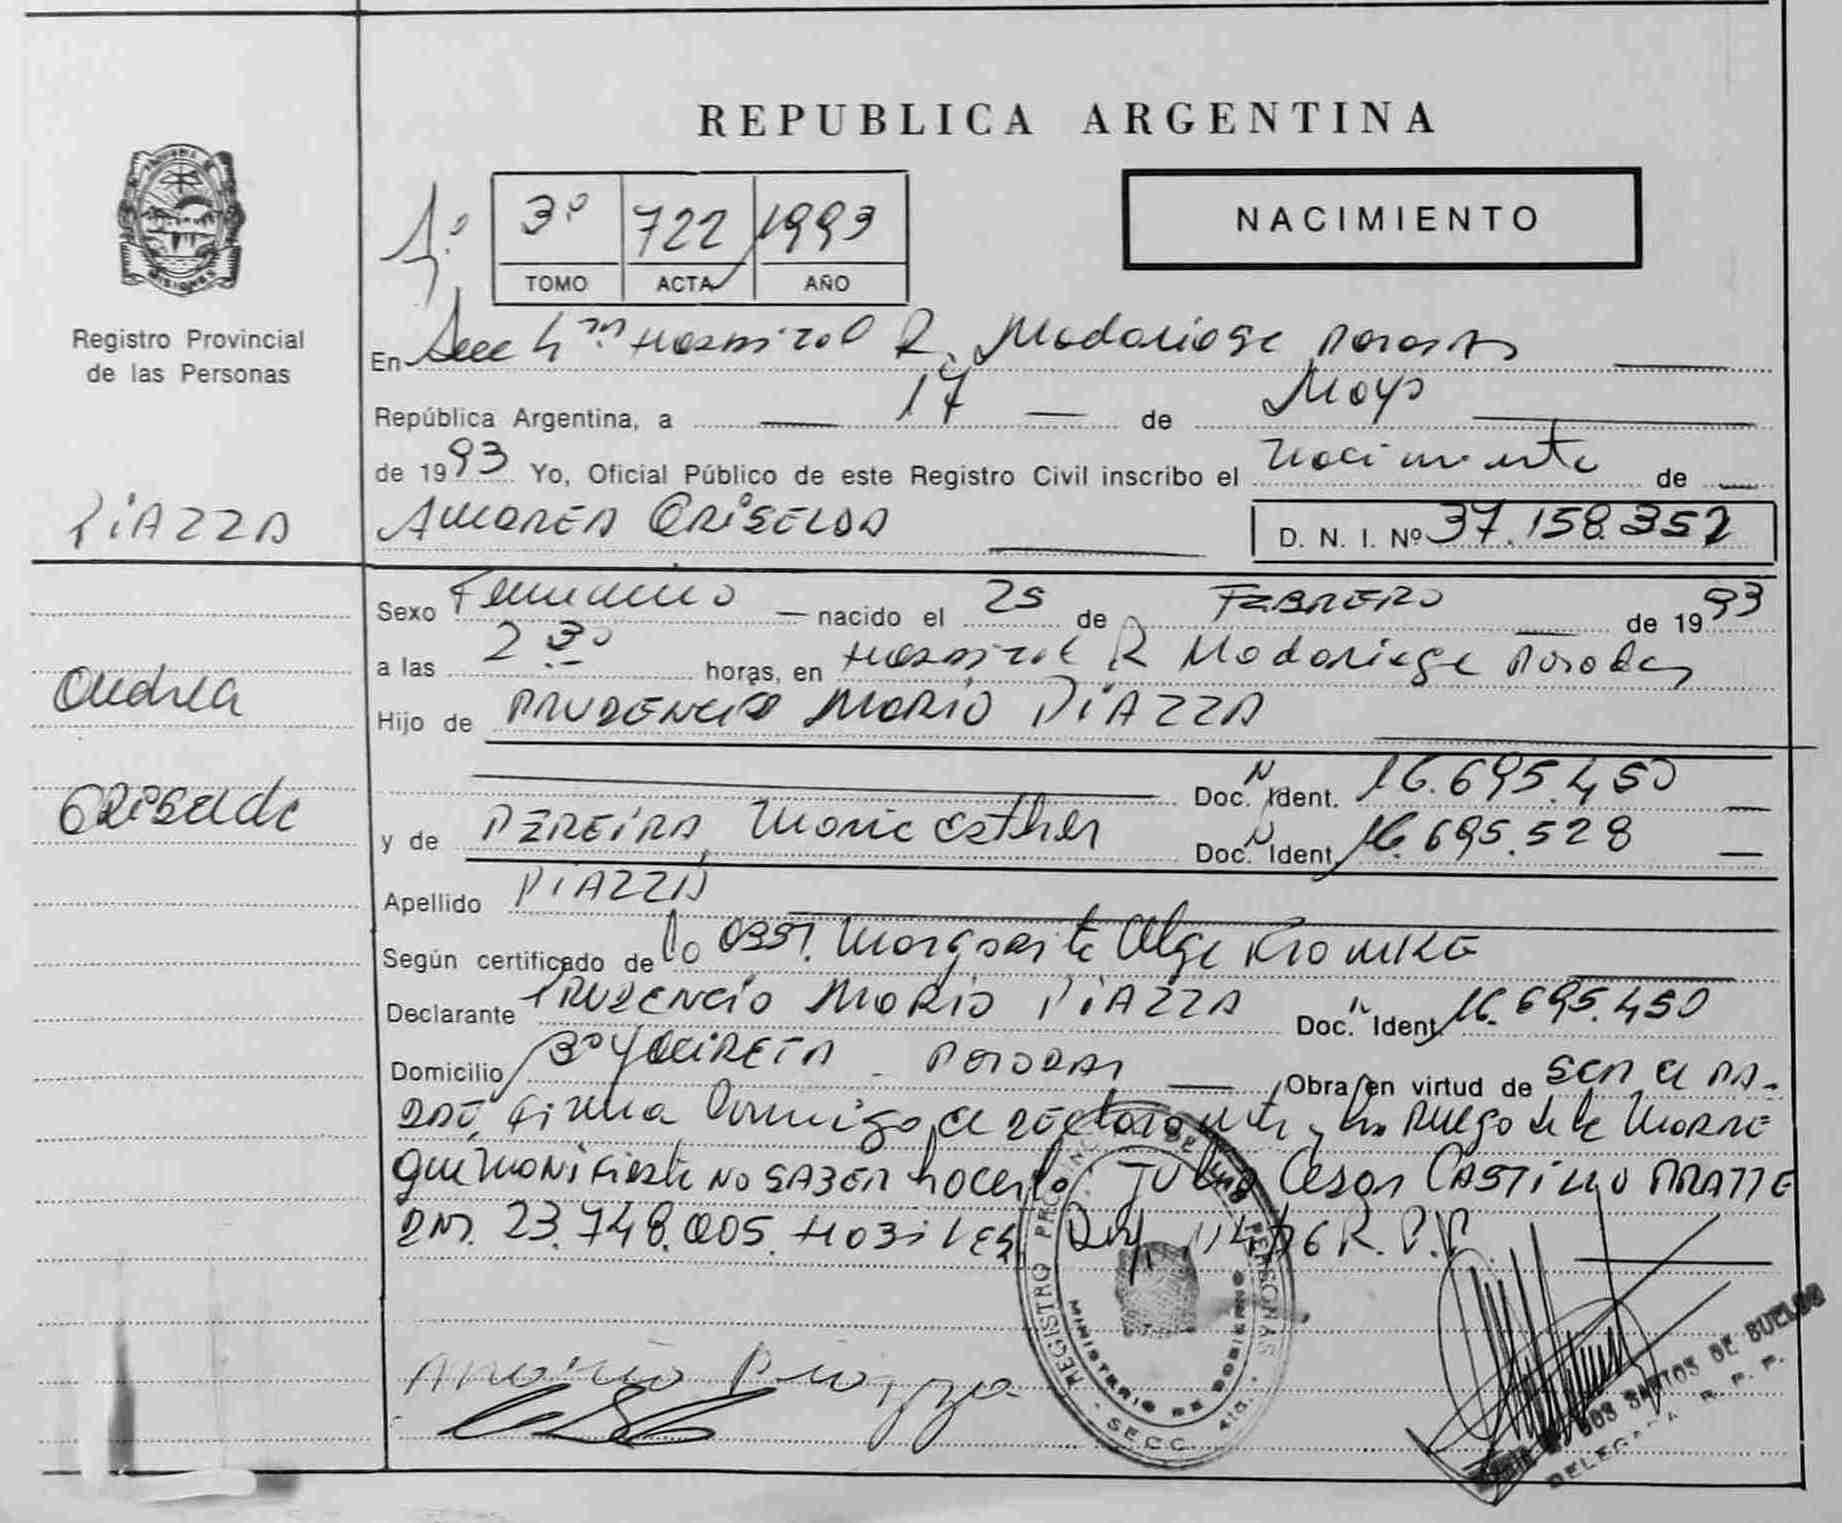 REPUBLICA ARGENTINA
NACIMIENTO
1º
3º 722 1993
TOMO ACTA AÑO
Registro Provincial
de las Personas
En Secc 4ta Hospital R. Madariaga Posadas
República Argentina, a 17 de Mayo
de 1993 Yo, Oficial Público de este Registro Civil inscribo el nacimiento de
PIAZZA
ANDREA GRISELDA D. N. I. Nº 37.158.352
Sexo Femenino nacido el 25 de FEBRERO de 1993
a las 2 30 horas, en Hospital R Madariaga Posadas
Andrea
Hijo de PRUDENCIO MARIO PIAZZA
N
Doc. Ident. 16.695.450
Griselda
y de PEREIRA, Maria Esther Doc. N Ident. 16.695.528
Apellido PIAZZA
Según certificado de la Obst. Margarita Olga
Declarante PRUDENCIO MARIO PIAZZA Doc. N Ident. 16.695.450
Domicilio Bº YACIRETA - POSADAS Obra en virtud de SER el PA-
DRE, firma conmigo el declarante y a ruego de la MADRE
que manifiesta NO SABER hacerlo JULIO Cesar CASTILLO
DNI. 23.748.005. HABILES. R.P.P.
REGISTRO PROVINCIAL DE LAS PERSONAS
MINISTERIO DE GOBIERNO
SECC. 4ta.
Piazza
SANTOS DE BUELOS
DELEGADA R. P. P.